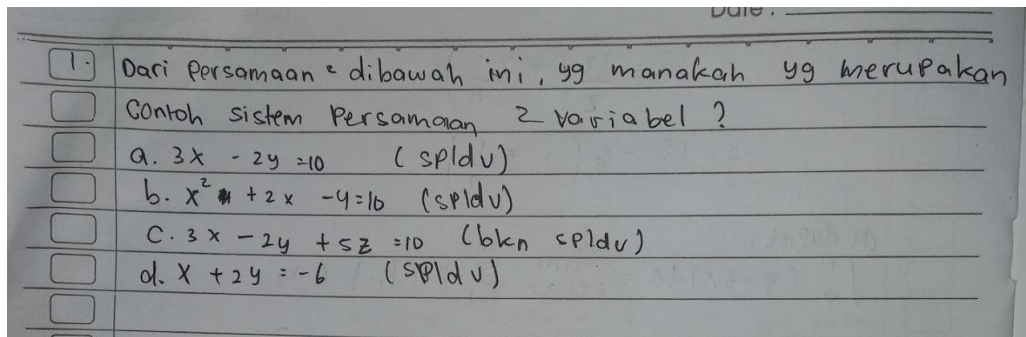 Date :
1. Dari Persamaan 2 dibawah ini, yg manakah yg merupakan
Contoh sistem Persamaan 2 variabel ?
a. 3x - 2y = 10 ( spldv)
b. x² + 2x - y = 10 (spldv)
c. 3x - 2y + 5z = 10 (bkn spldv)
d. x + 2y = -6 (spldv)